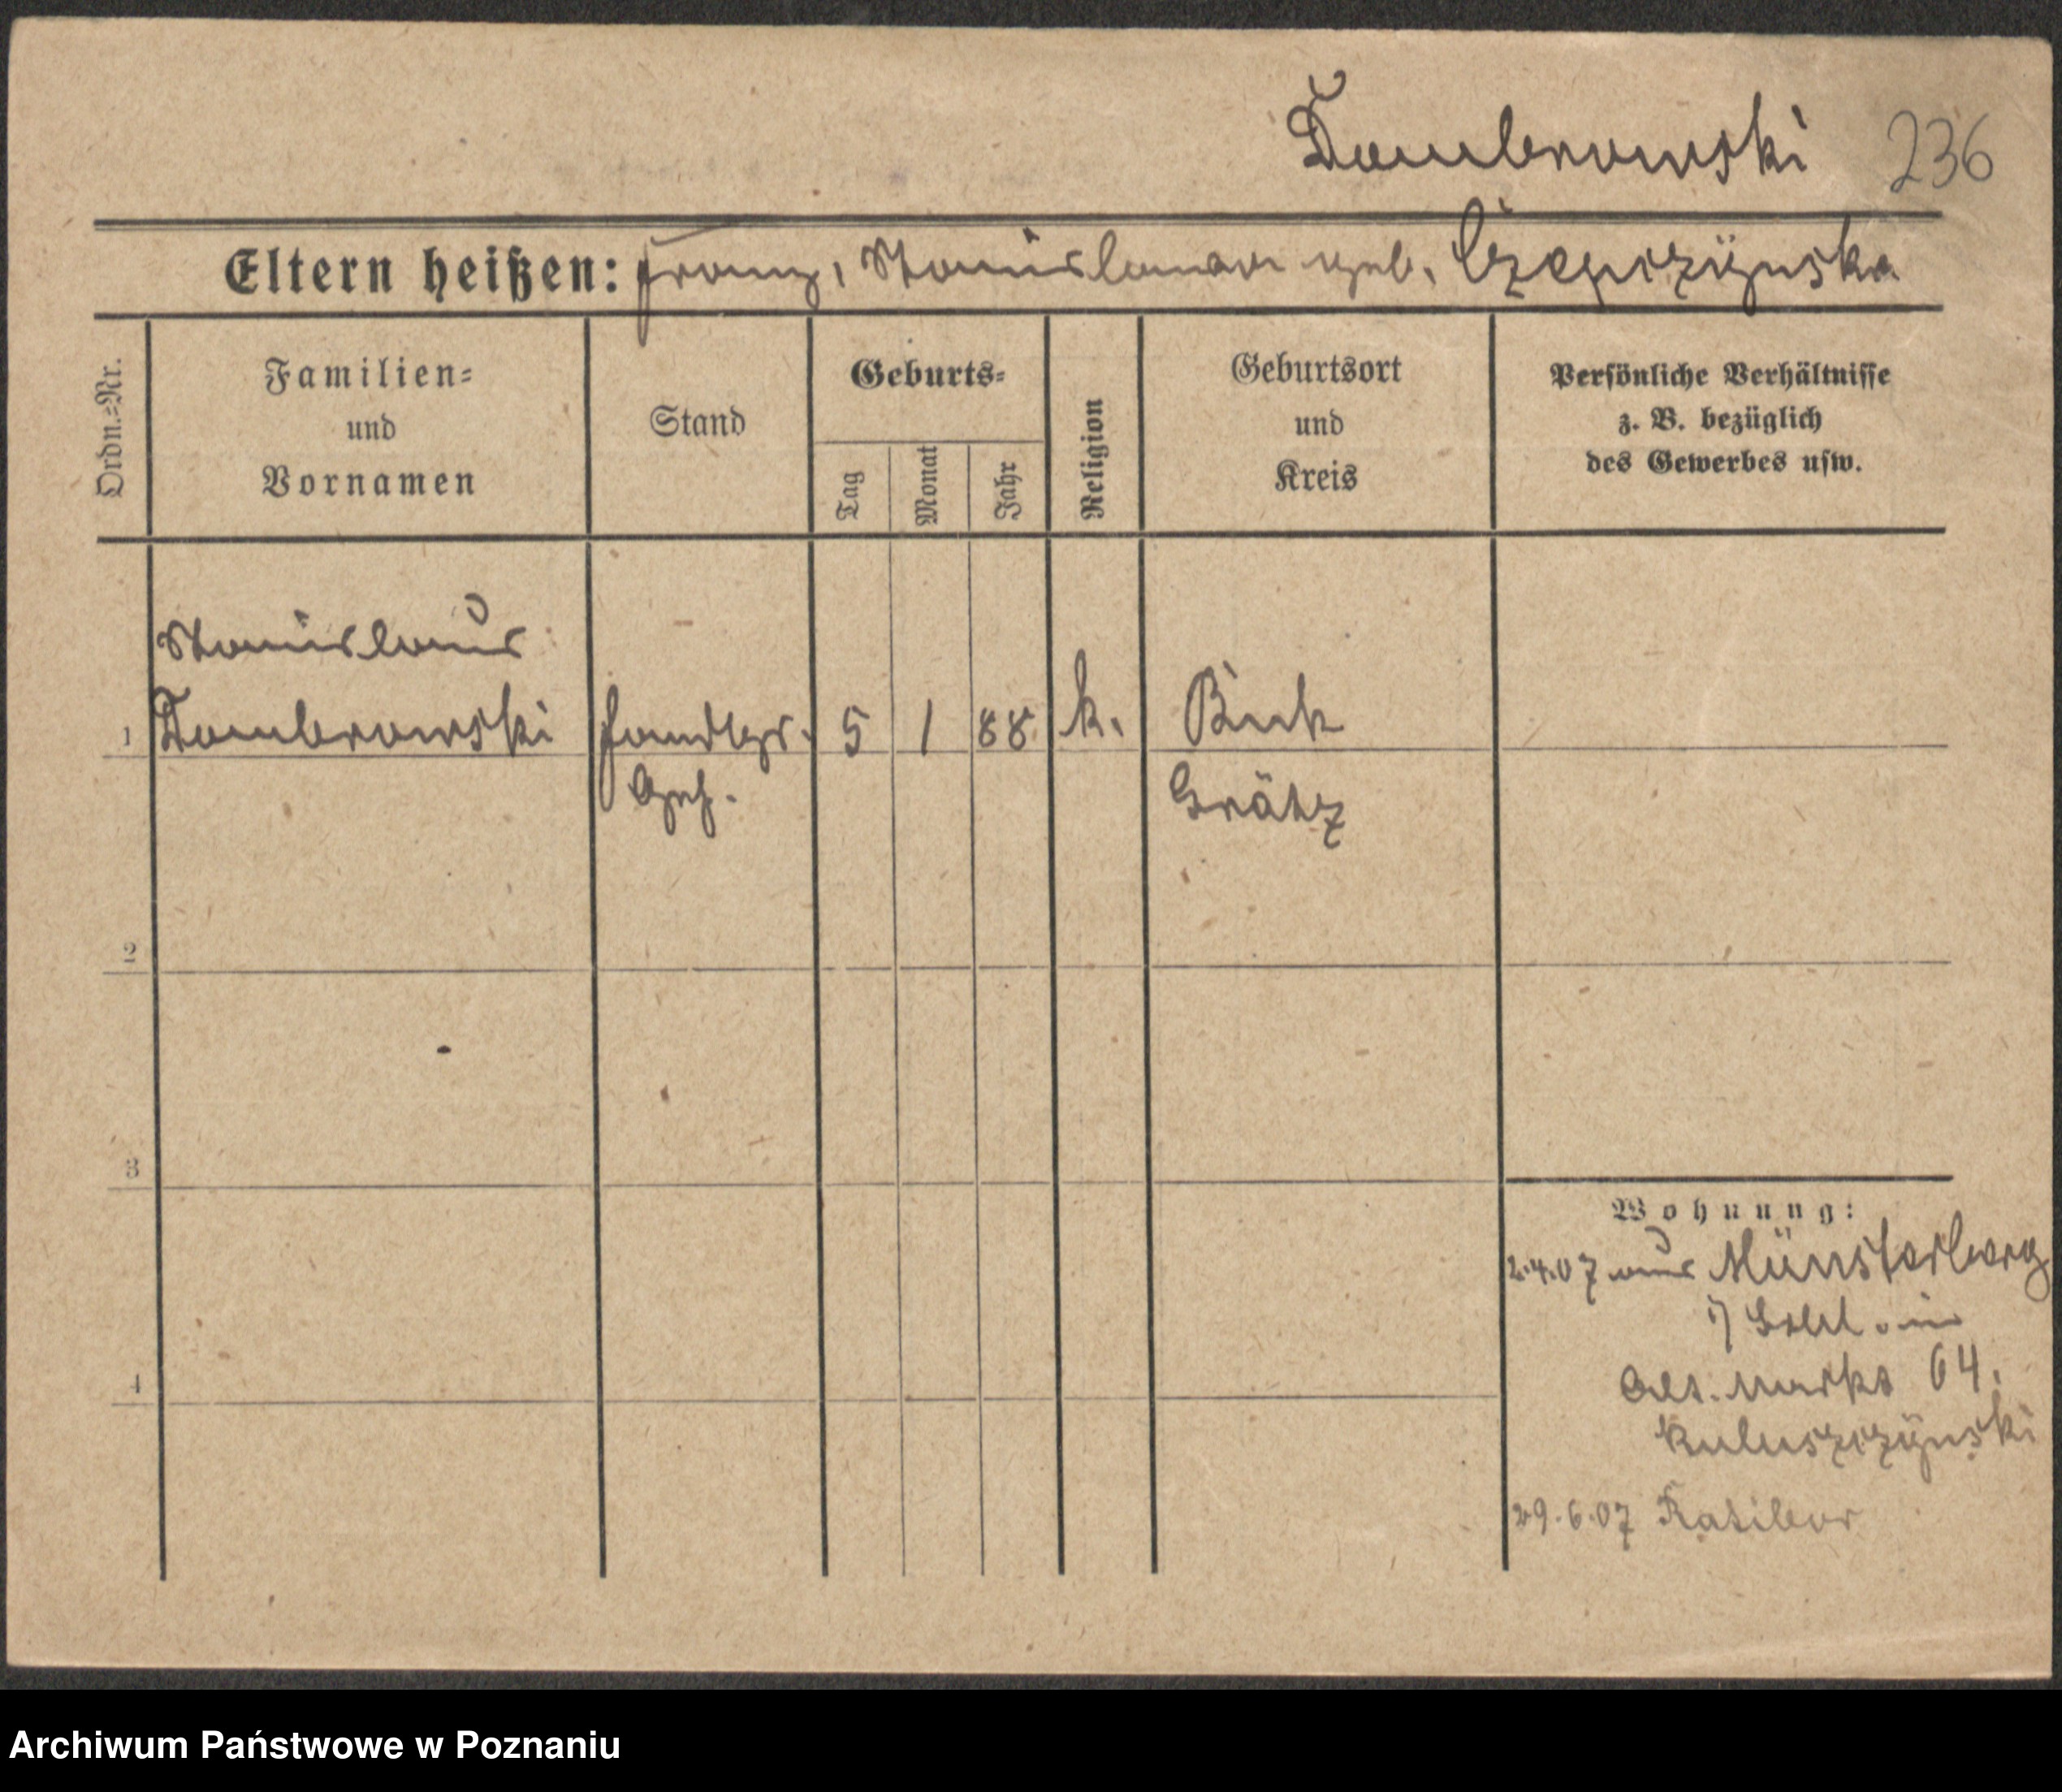 Dombrowski 236
Eltern heißen: Franz, Stanislawa geb. Czepczyńska
Ordn.=Nr.
Familien=
und
Vornamen
Stand
Geburts=
Tag
Monat
Jahr
Religion
Geburtsort
und
Kreis
Persönliche Verhältnisse
z. B. bezüglich
des Gewerbes usw.
Stanislaus
1 Dombrowski 5 1 88 k. Buk
Grätz
2
3
4
Wohnung:
2.4.07 aus Münsterberg
Alt. Markt 64.
29.6.07 Ratibor
Archiwum Państwowe w Poznaniu